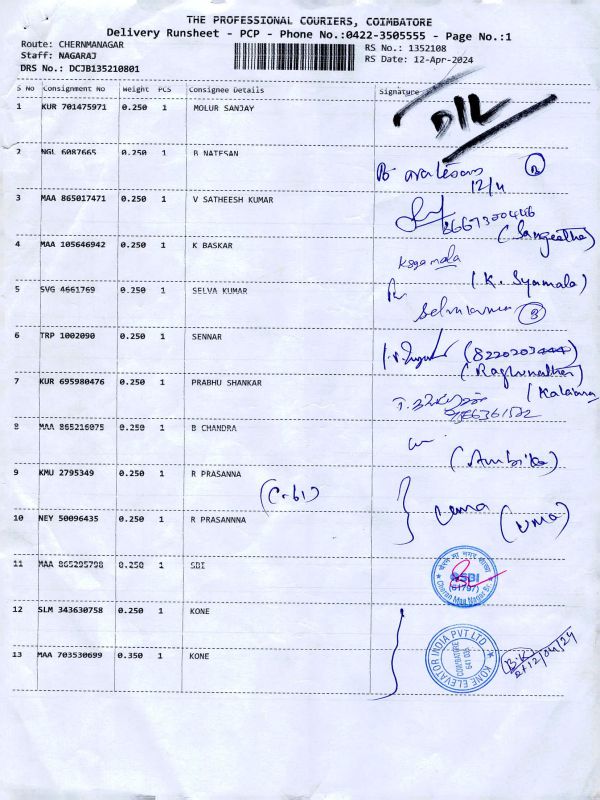 THE PROFESSIONAL COURIERS, COIMBATORE
Delivery Runsheet - PCP - Phone No.:0422-3505555 - Page No.:1
Route: CHERNMANAGAR
RS No.: 1352108
Staff: NAGARAJ
RS Date: 12-Apr-2024
DRS No.: DCJB135210801
S No Consignment No Weight PCS Consignee Details Signature
1 KUR 701475971 0.250 1 MOLUR SANJAY
D/L
2 NGL 6087665 0.250 1 B NATESAN
B natesan
12/4
3 MAA 865017471 0.250 1 V SATHEESH KUMAR
(Sangeetha)
4 MAA 105646942 0.250 1 K BASKAR
Ksyamala
(K. Syamala)
5 SVG 4661769 0.250 1 SELVA KUMAR
6 TRP 1002090 0.250 1 SENNAR
(Raghunathan)
7 KUR 695980476 0.250 1 PRABHU SHANKAR
8 MAA 865216075 0.250 1 B CHANDRA
(Ambika)
9 KMU 2795349 0.250 1 R PRASANNA
10 NEY 50096435 0.250 1 R PRASANNNA
uma (uma)
11 MAA 865295798 0.250 1 SBI
SBI
(61797)
12 SLM 343630758 0.250 1 KONE
13 MAA 703530699 0.350 1 KONE
KONE ELEVATOR INDIA PVT LTD
COIMBATORE
641 035
12/04/24